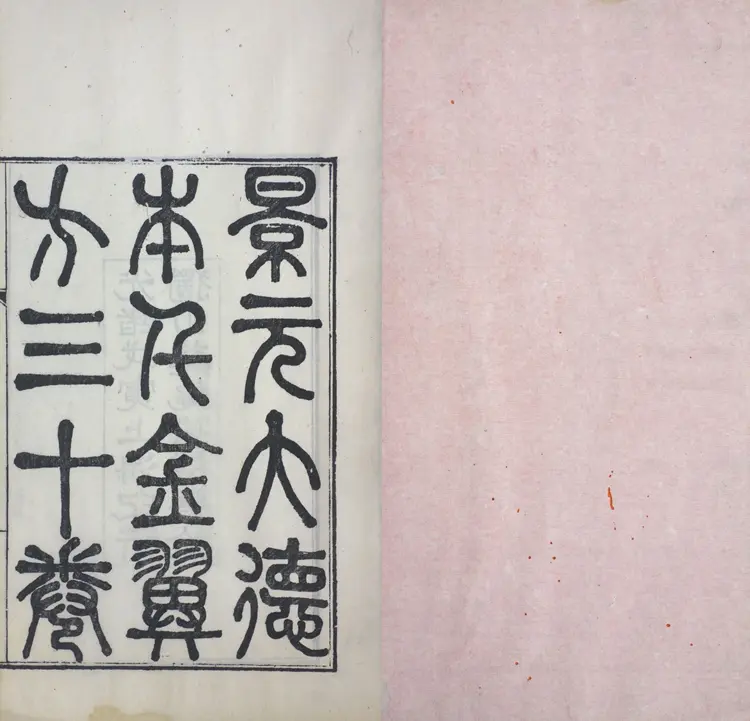 景元大德
本千金翼
方三十卷